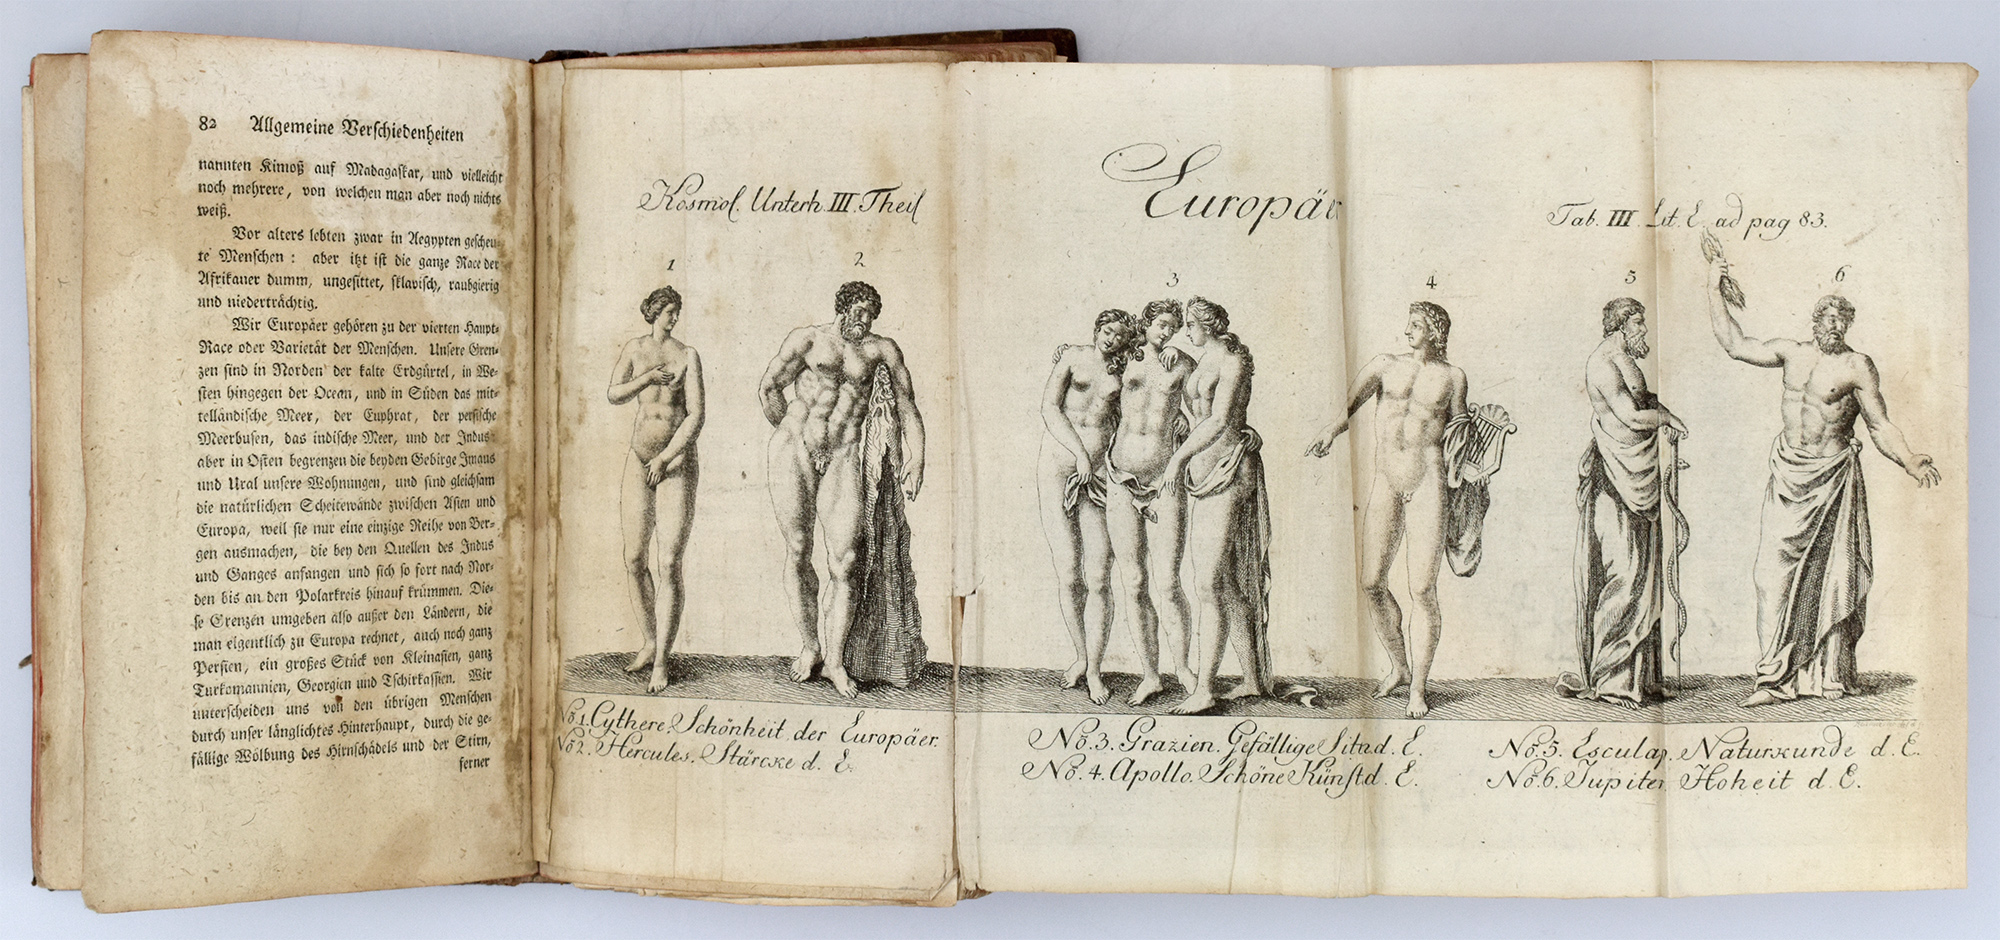 82 Allgemeine Verschiedenheiten
nannten Kimoß auf Madagaskar, und vielleicht
noch mehrere, von welchen man aber noch nichts
weiß.
Vor alters lebten zwar in Aegypten gescheu-
te Menschen: aber itzt ist die ganze Race der
Afrikaner dumm, ungesittet, sklavisch, raubgierig
und niederträchtig.
Wir Europäer gehören zu der vierten Haupt-
Race oder Varietät der Menschen. Unsere Gren-
zen sind in Norden der kalte Erdgürtel, in We-
sten hingegen der Ocean, und in Süden das mit-
telländische Meer, der Euphrat, der persische
Meerbusen, das indische Meer, und der Indus
aber in Osten begrenzen die beyden Gebirge Imaus
und Ural unsere Wohnungen, und sind gleichsam
die natürlichen Scheitewände zwischen Asien und
Europa, weil sie nur eine einzige Reihe von Ber-
gen ausmachen, die bey den Quellen des Indus
und Ganges anfangen und sich so fort nach Nor-
den bis an den Polarkreis hinauf krümmen. Die-
se Grenzen umgeben also außer den Ländern, die
man eigentlich zu Europa rechnet, auch noch ganz
Persien, ein großes Stück von Kleinasien, ganz
Turkomannien, Georgien und Tschirkassien. Wir
unterscheiden uns von den übrigen Menschen
durch unser länglichtes Hinterhaupt, durch die ge-
fällige Wölbung des Hirnschädels und der Stirn,
ferner
Kosmol. Unterh. III. Theil
Europäer
Tab. III. Lit. E. ad pag 83.
1
2
3
4
5
6
No 1. Cythere. Schönheit der Europäer.
No 2. Hercules. Stärcke d. E.
No. 3. Grazien. Gefällige Sitn d. E.
No. 4. Apollo. Schöne Künst d. E.
No. 5. Esculap. Naturkunde d. E.
No. 6. Jupiter Hoheit d. E.